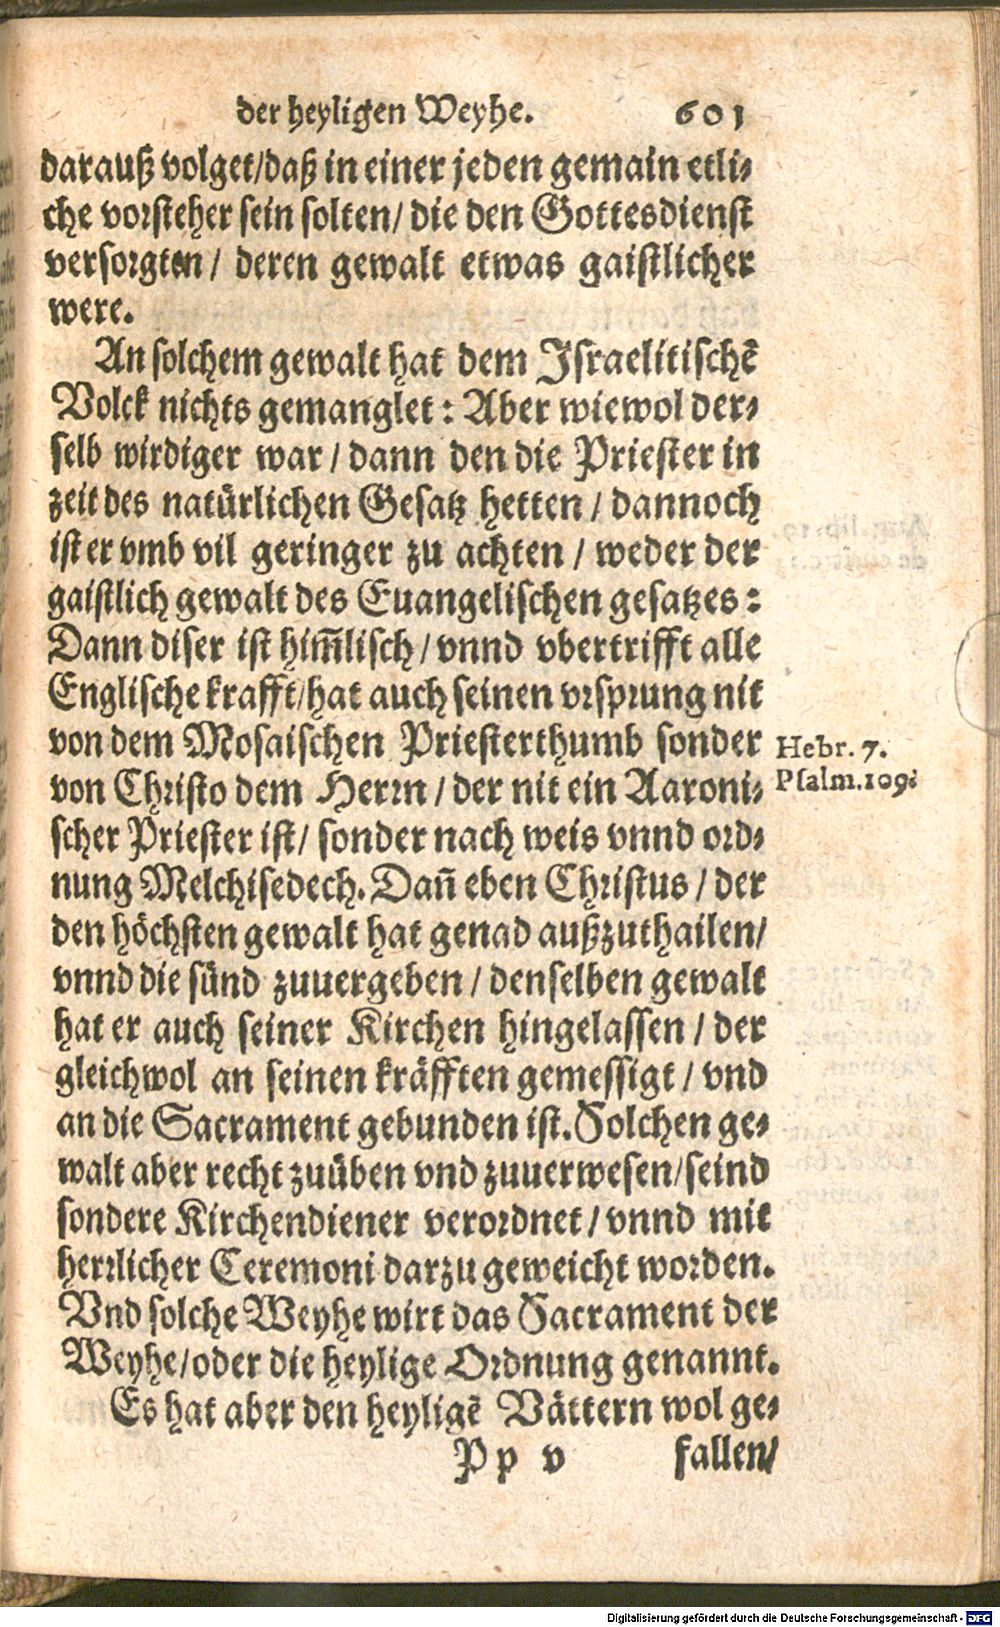 der heyligen Weyhe. 601
darauß volget/daß in einer jeden gemain etli-
che vorsteher sein solten/ die den Gottesdienst
versorgten/ deren gewalt etwas gaistlicher
were.
An solchem gewalt hat dem Israelitischē
Volck nichts gemanglet: Aber wiewol der-
selb wirdiger war/ dann den die Priester in
zeit des natürlichen Gesatz hetten/ dannoch
ist er vmb vil geringer zu achten/ weder der
gaistlich gewalt des Euangelischen gesatzes:
Dann diser ist him̃lisch/ vnnd vbertrifft alle
Englische krafft/hat auch seinen vrsprung nit
von dem Mosaischen Priesterthumb sonder
Hebr. 7.
von Christo dem Herrn/ der nit ein Aaroni-
Psalm.109.
scher Priester ist/ sonder nach weis vnnd ord-
nung Melchisedech. Dañ eben Christus/ der
den höchsten gewalt hat genad außzuthailen/
vnnd die sünd zuuergeben/ denselben gewalt
hat er auch seiner Kirchen hingelassen/ der
gleichwol an seinen kräfften gemessigt/ vnd
an die Sacrament gebunden ist. Solchen ge-
walt aber recht zuüben vnd zuuerwesen/seind
sondere Kirchendiener verordnet/ vnnd mit
herrlicher Ceremoni darzu geweicht worden.
Vnd solche Weyhe wirt das Sacrament der
Weyhe/oder die heylige Ordnung genannt.
Es hat aber den heyligē Vättern wol ge-
Pp v fallen/
Digitalisierung gefördert durch die Deutsche Forschungsgemeinschaft - DFG